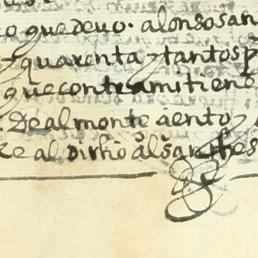 o que devo. alonso san
quarenta y tantos p
que contra mi tiene
. De almonte aento y
Re al dicho alo sanches